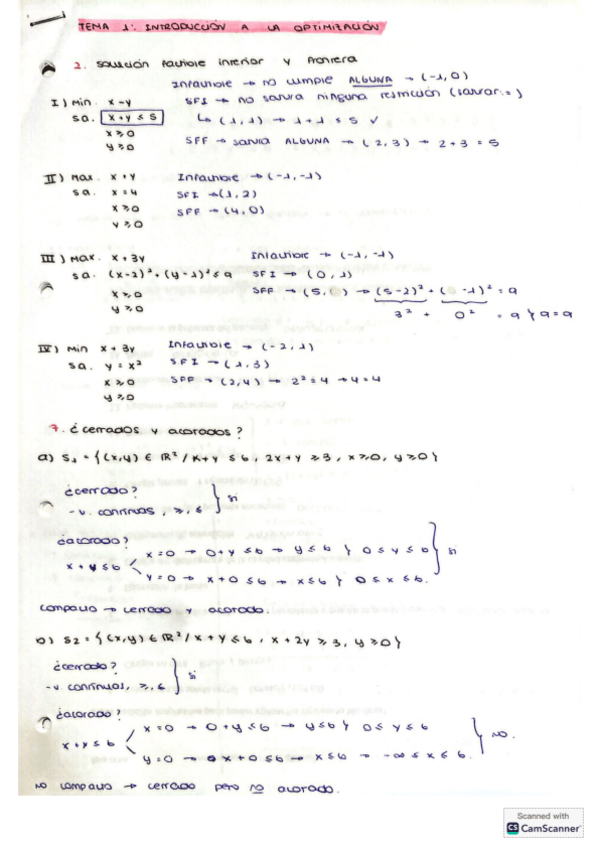 TEMA 1: INTRODUCCIÓN A LA OPTIMIZACIÓN
2. Solución factible interior y frontera
Infactible → no cumple ALGUNA → (-1, 0)
I) Min. x - y SFI → no satura ninguna restricción (saturar: =)
s.a. x + y ≤ 5 ↳ (1, 1) → 1 + 1 ≤ 5 ✓
x ≥ 0
y ≥ 0 SFF → satura ALGUNA → (2, 3) → 2 + 3 = 5
II) Max. x + y Infactible → (-1, -1)
s.a. x = 4 SFI → (1, 2)
x ≥ 0 SFF → (4, 0)
y ≥ 0
III) Max. x + 3y Infactible → (-1, -1)
s.a. (x-2)² + (y-1)² ≤ 9 SFI → (0, 1)
x ≥ 0 SFF → (5, ) → (5-2)² + ( -1)² = 9
y ≥ 0 3² + 0² = 9 } 9 = 9
IV) Min x + 3y Infactible → (-2, 1)
s.a. y = x² SFI → (1, 3)
x ≥ 0 SFF → (2, 4) → 2² = 4 → 4 = 4
y ≥ 0
7. ¿cerrados y acotados?
a) S₁ = {(x,y) ∈ ℝ² / x + y ≤ 6, 2x + y ≥ 3, x ≥ 0, y ≥ 0}
¿cerrado?
- v. continuas, ≥, ≤ } si
¿acotado?
x = 0 → 0 + y ≤ 6 → y ≤ 6 } 0 ≤ y ≤ 6
x + y ≤ 6 si
y = 0 → x + 0 ≤ 6 → x ≤ 6 } 0 ≤ x ≤ 6.
Compacto → cerrado y acotado.
b) S₂ = {(x,y) ∈ ℝ² / x + y ≤ 6, x + 2y ≥ 3, y ≥ 0}
¿cerrado?
- v. continuas, ≥, ≤ } si
¿acotado?
x = 0 → 0 + y ≤ 6 → y ≤ 6 } 0 ≤ y ≤ 6
x + y ≤ 6 } NO.
y = 0 → x + 0 ≤ 6 → x ≤ 6 → -∞ ≤ x ≤ 6.
No compacto → cerrado pero no acotado.
Scanned with
CS CamScanner